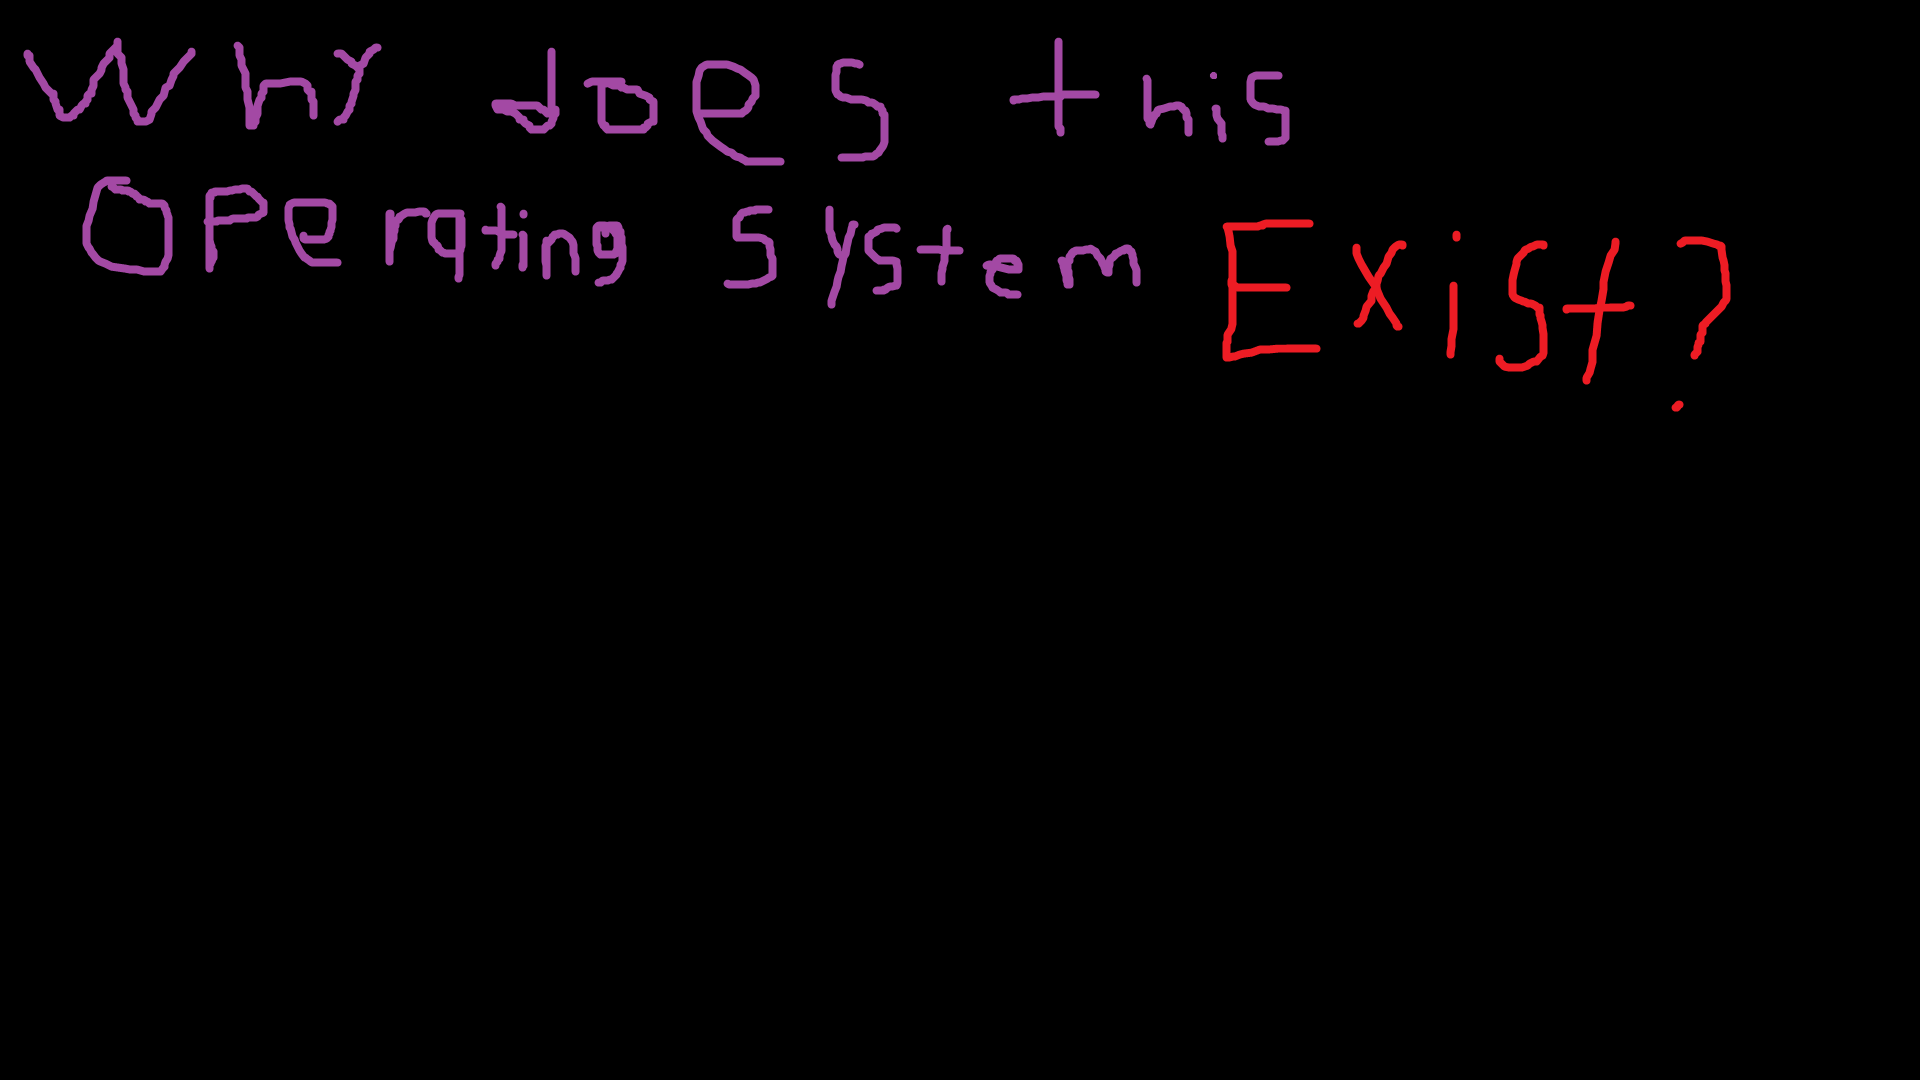 Why does this
Operating System Exist?